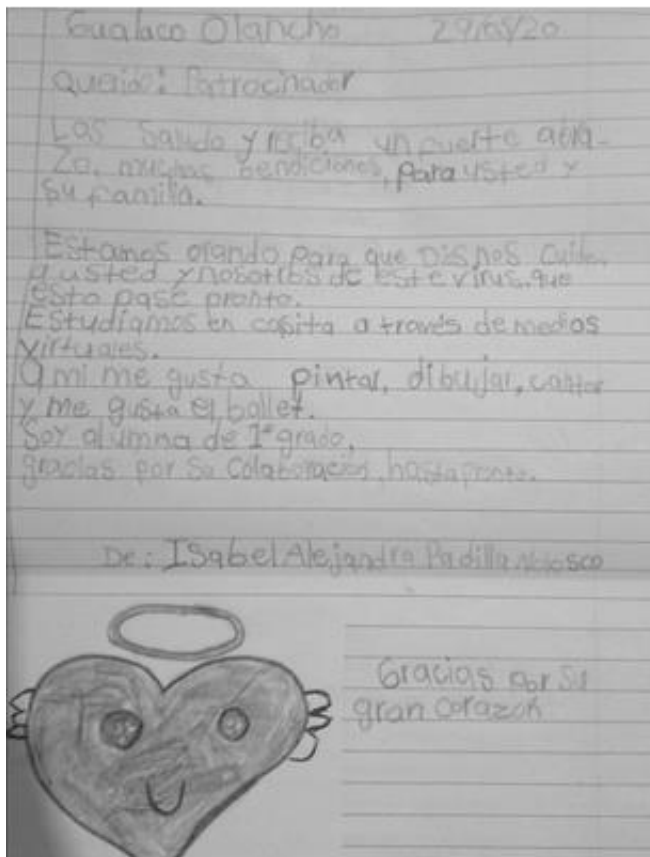 Gualaco Olancho 29/05/20
Querido: Patrocinador
Los Saludo y reciba un fuerte abra-
zo, muchas bendiciones, para usted y
su familia.
Estamos orando para que Dios nos Cuide,
a usted y nosotros de este virus, que
esto pase pronto.
Estudiamos en casita a través de medios
virtuales.
a mi me gusta pintar, dibujar, cantar
y me gusta el ballet.
Soy alumna de 1º grado,
gracias por su Colaboración, hasta pronto.
De: ISabel Alejandra Padilla
Gracias por Su
gran corazon